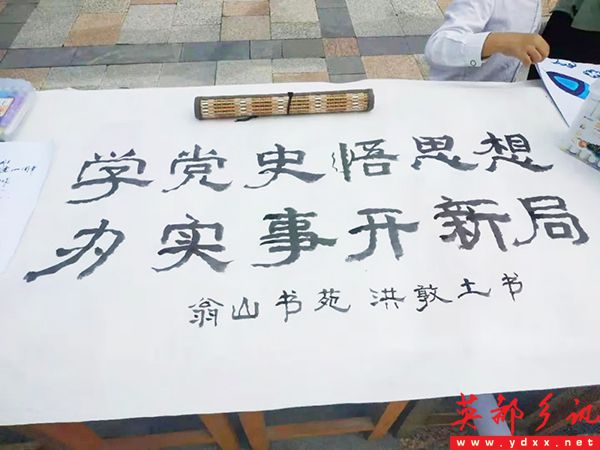 学党史悟思想
办实事开新局
翁山书苑 洪敦土书
英都乡讯
www.ydxx.net